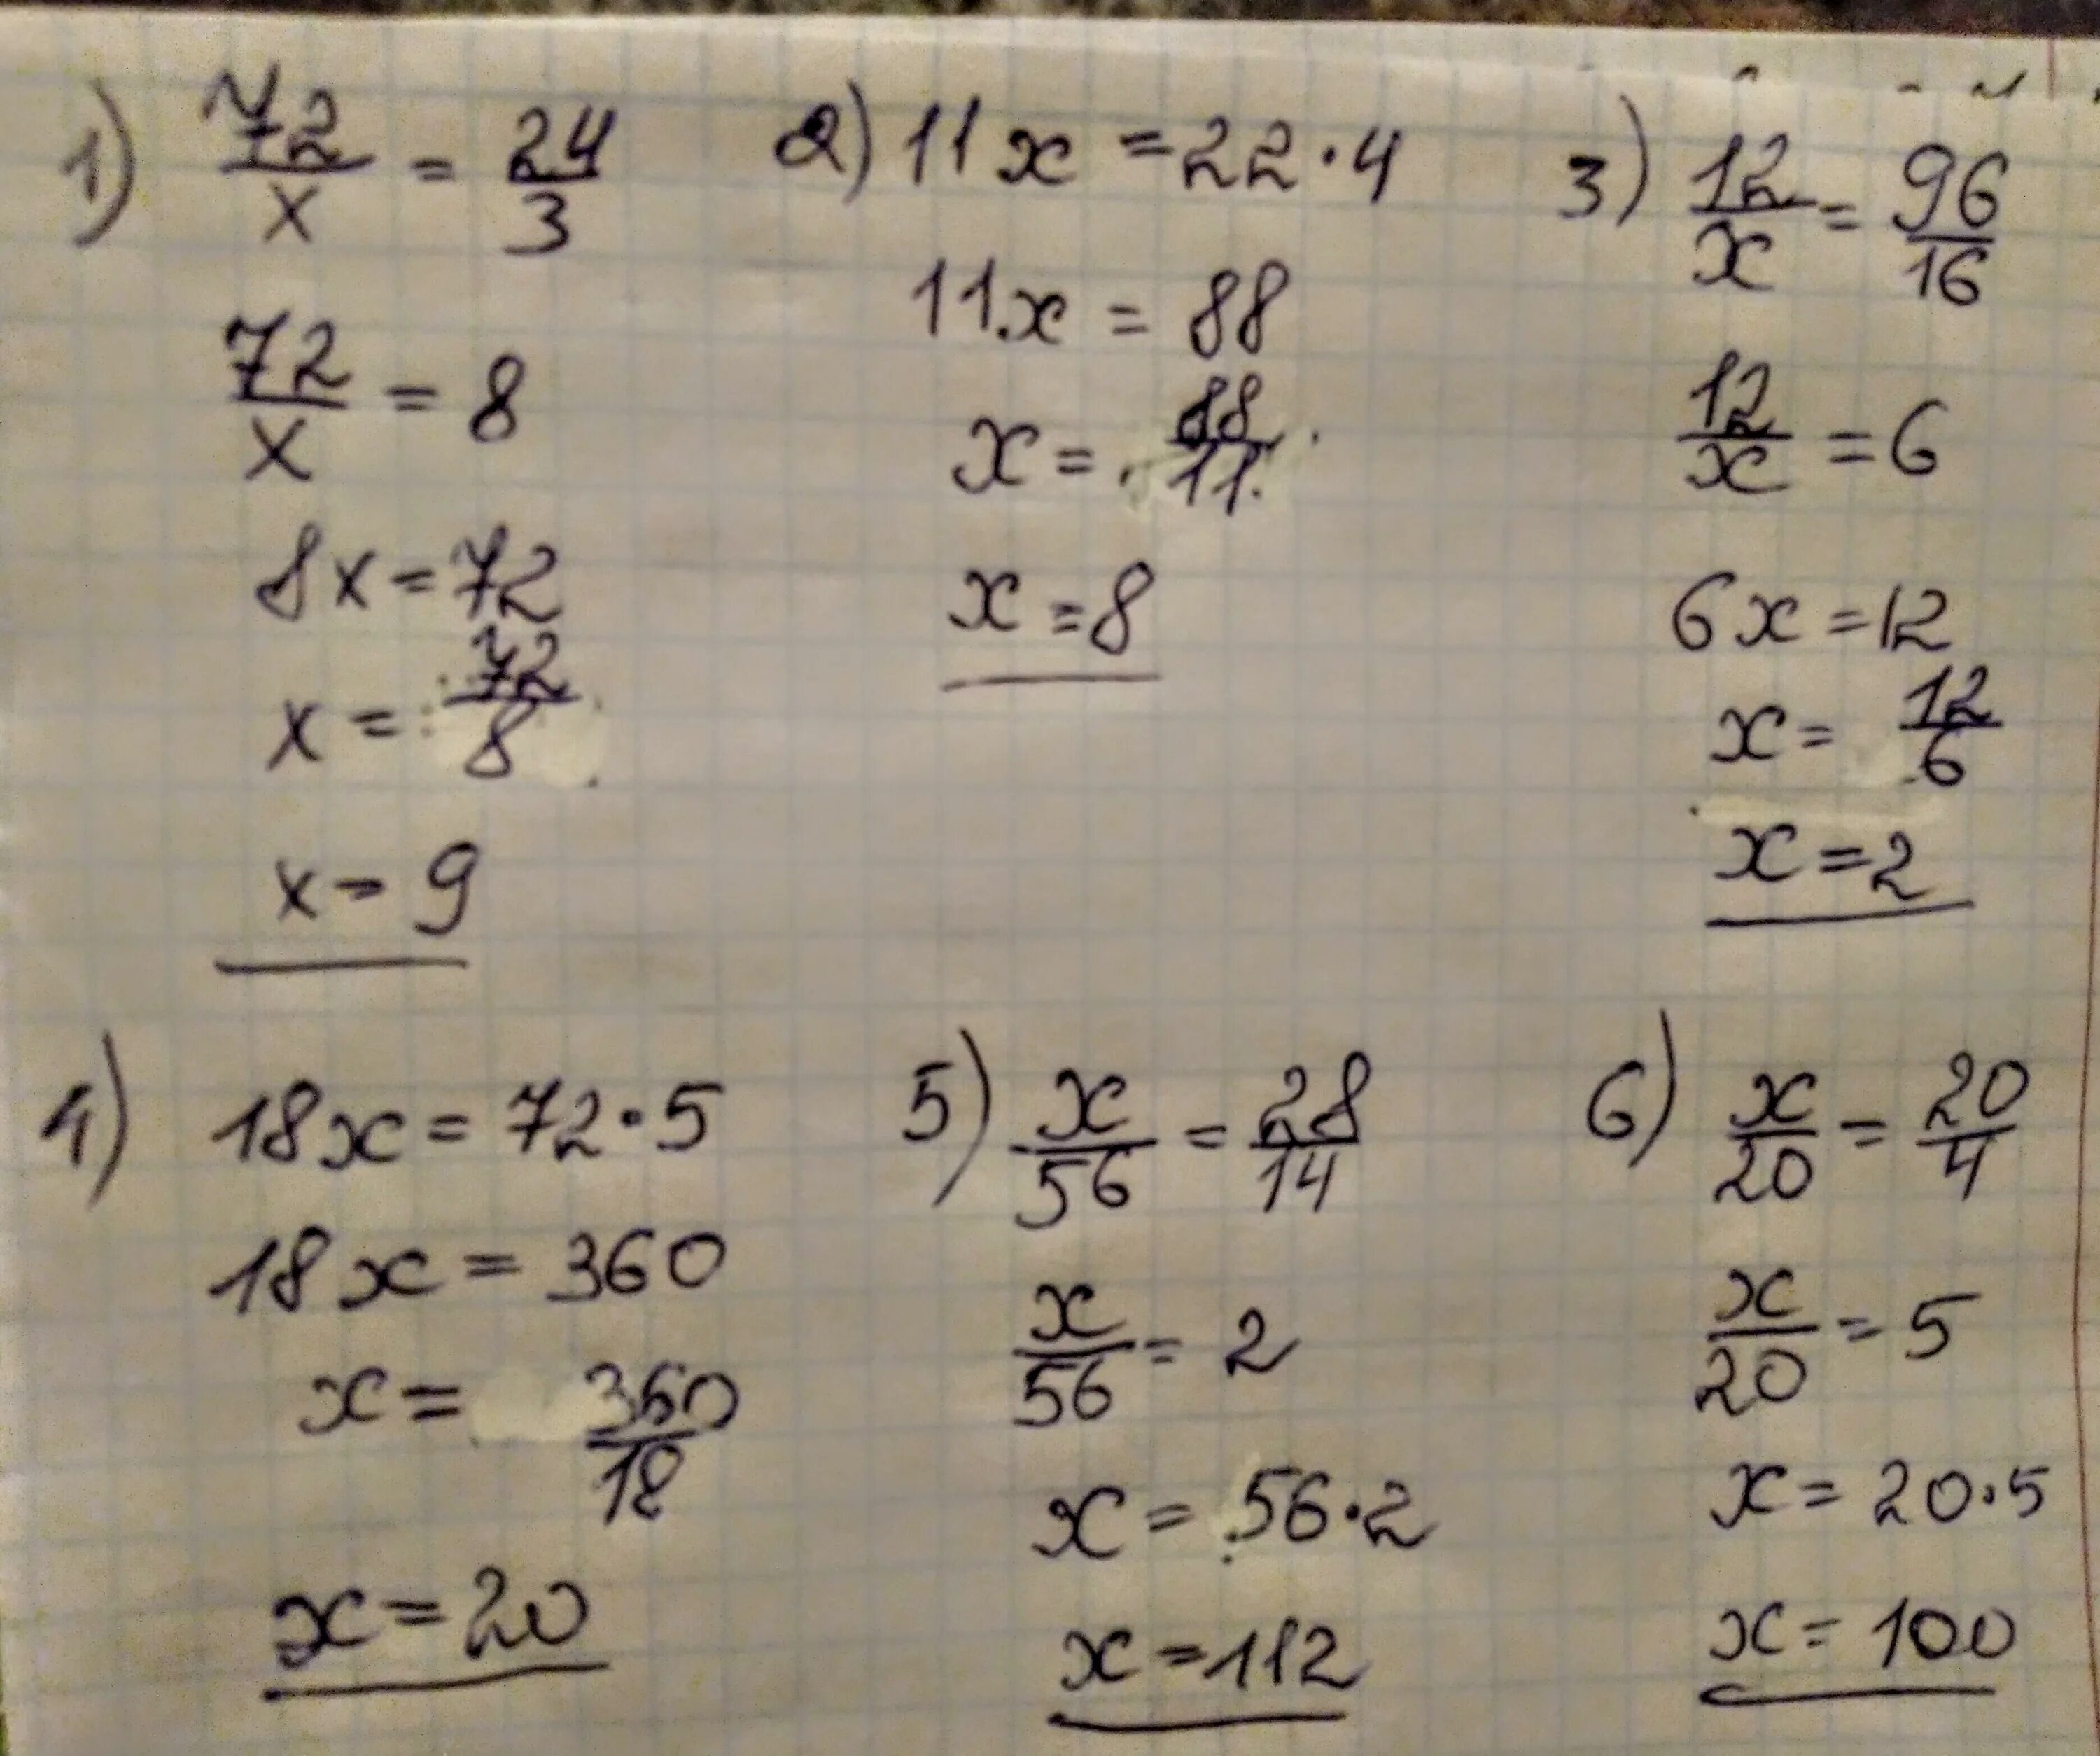 1) 72/x = 24/3
72/x = 8
8x = 72
x = 72/8
x = 9
2) 11x = 22·4
11x = 88
x = 88/11
x = 8
3) 12/x = 96/16
12/x = 6
6x = 12
x = 12/6
x = 2
4) 18x = 72·5
18x = 360
x = 360/18
x = 20
5) x/56 = 28/14
x/56 = 2
x = 56·2
x = 112
6) x/20 = 20/4
x/20 = 5
x = 20·5
x = 100